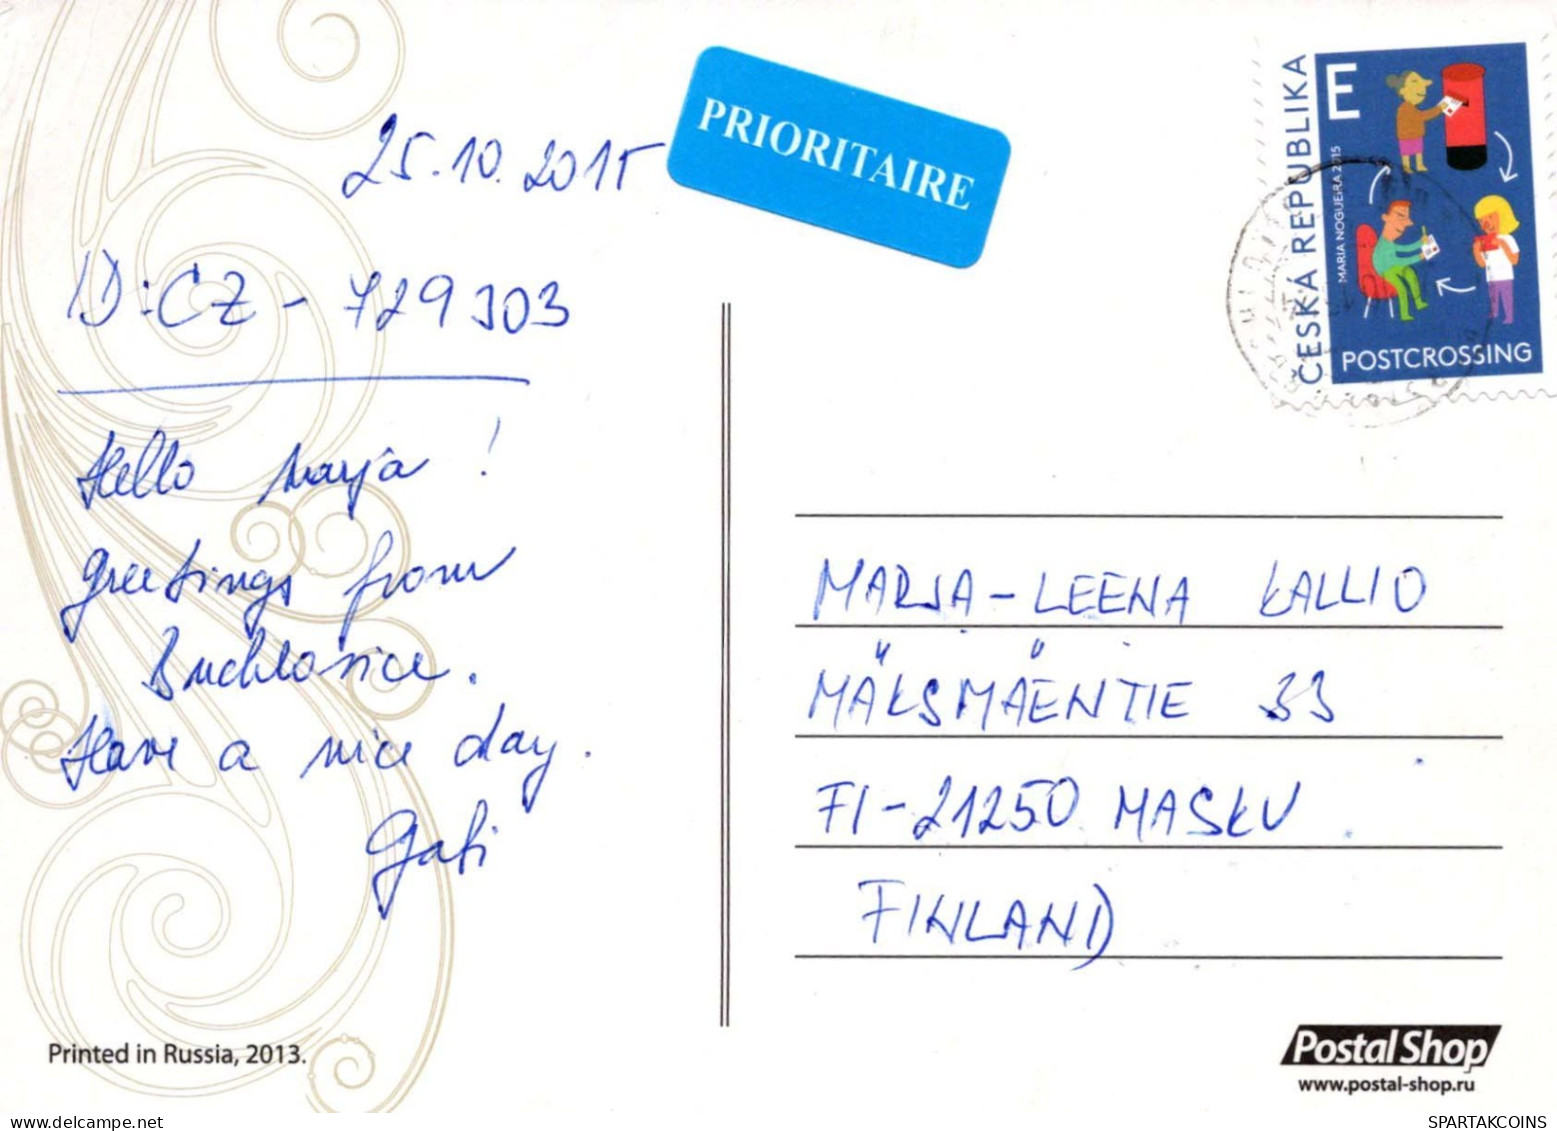 25.10.2015
ID: CZ - 729303
Hello Marja!
greetings from
Buchlovice.
Have a nice day.
Gabi
PRIORITAIRE
E
ČESKÁ REPUBLIKA
MARIA NOGUERA 2015
POSTCROSSING
MARJA-LEENA KALLIO
MÄKSMÄENTIE 33
FI-21250 MASKU
FINLAND
Printed in Russia, 2013.
Postal Shop
www.postal-shop.ru
SPARTAKCOINS